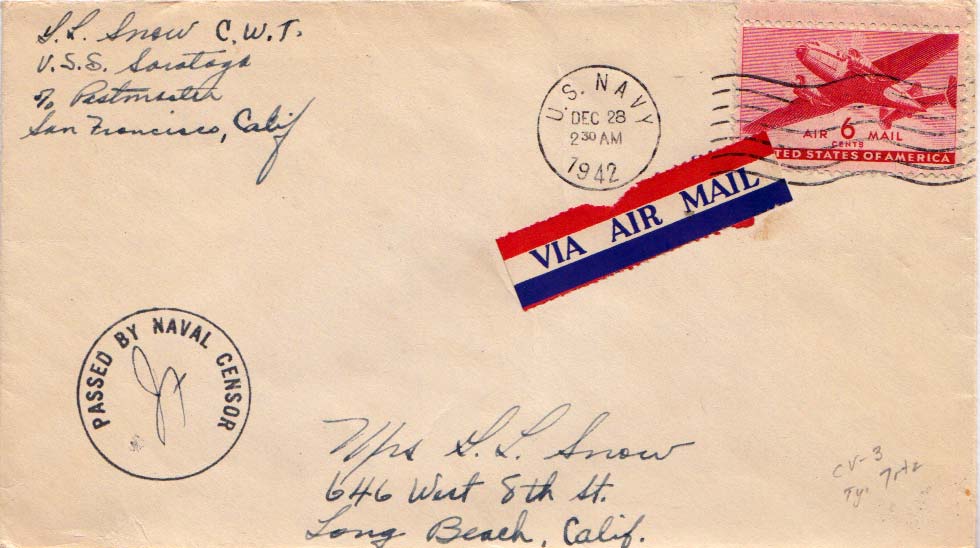 S.L. Snow C.W.T.
U.S.S. Saratoga
c/o Postmaster
San Francisco, Calif
U.S. NAVY
DEC 28
2 30 AM
1942
AIR 6 MAIL
CENTS
TED STATES OF AMERICA
VIA AIR MAIL
PASSED BY NAVAL CENSOR
Mrs S. L. Snow
646 West 8th St.
Long Beach, Calif.
CV-3
Ty.